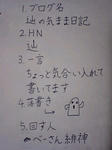 1.ブログ名
辿の気まま日記
2.HN
辿
3.一言
ちょっと気合い入れて
書いてます
4.落書き
5.回す人
べーさん 緋神